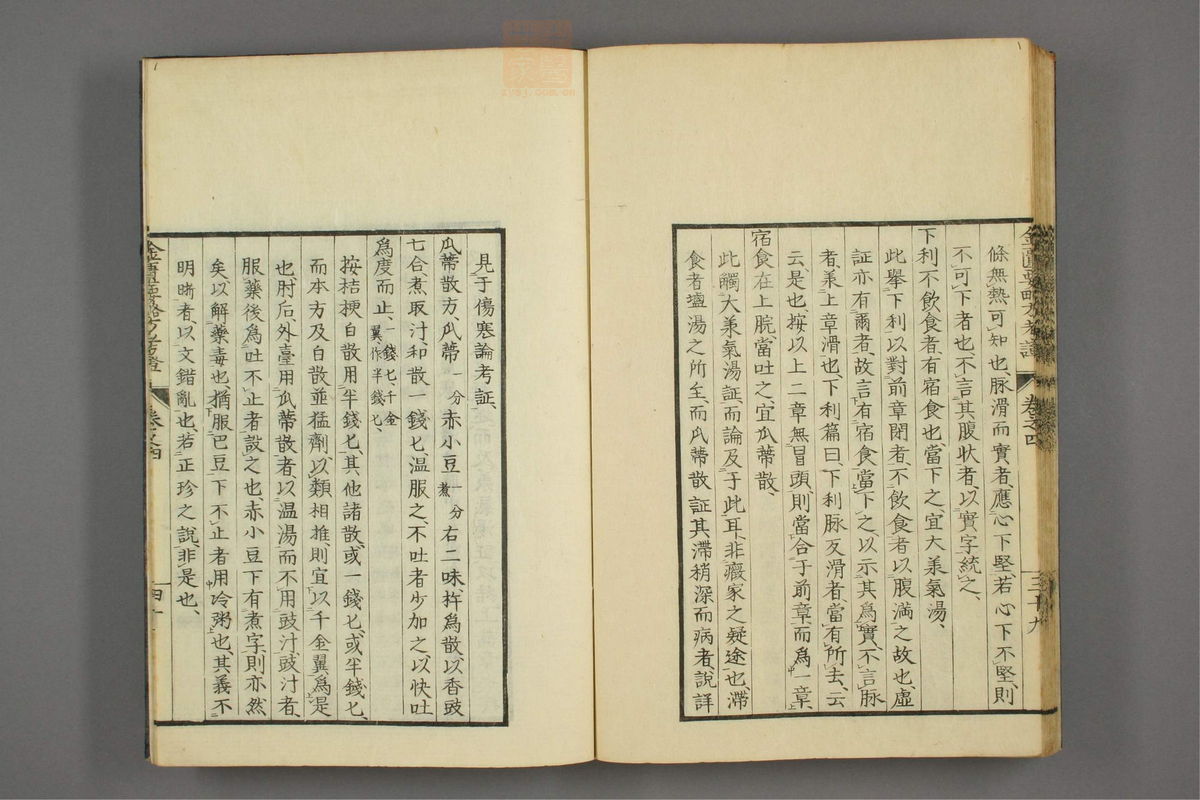 條無熱可知也、脉滑而實者、應心下堅、若心下不堅、則
不可下者也、不言其腹状者、以實字統之、
下利不飲食者、有宿食也、當下之、宜大羕氣湯、
此舉下利以對前章閉者、不飲食者以腹満之故也、虛
証亦有爾者、故言有宿食當下之、以示其爲實、不言脉
者、羕上章滑也、下利篇曰、下利脉反滑者、當有所去、云
云、是也、按以上二章無冒頭、則當合于前章而爲一章、
宿食在上脘、當吐之、宜瓜蒂散、
此觸大羕氣湯証、而論及于此耳、非癥家之疑途也、滞
食者塩湯之所主、而瓜蒂散証其滞稍深而病者、說詳
卷之四
三十九
見于傷寒論考証、
瓜蒂散方、瓜蒂一分赤小豆一分煮右二味、杵爲散、以香豉
七合、煮取汁、和散一錢匕、温服之、不吐者、少加之、以快吐
爲度而止、一錢匕、千金翼、作半錢匕、
按桔梗白散用半錢匕、其他諸散、或一錢匕、或半錢匕、
而本方及白散並猛劑、以類相推、則宜以千金翼爲是
也、肘后、外臺用瓜蒂散者、以温湯而不用豉汁、豉汁者、
服藥後爲吐不止者設之也、赤小豆下有煮字、則亦然
矣、以解藥毒也、猶服巴豆下不止者用冷粥也、其義不
明晰者、以文錯亂也、若正珍之說、非是也、
卷之四
四十